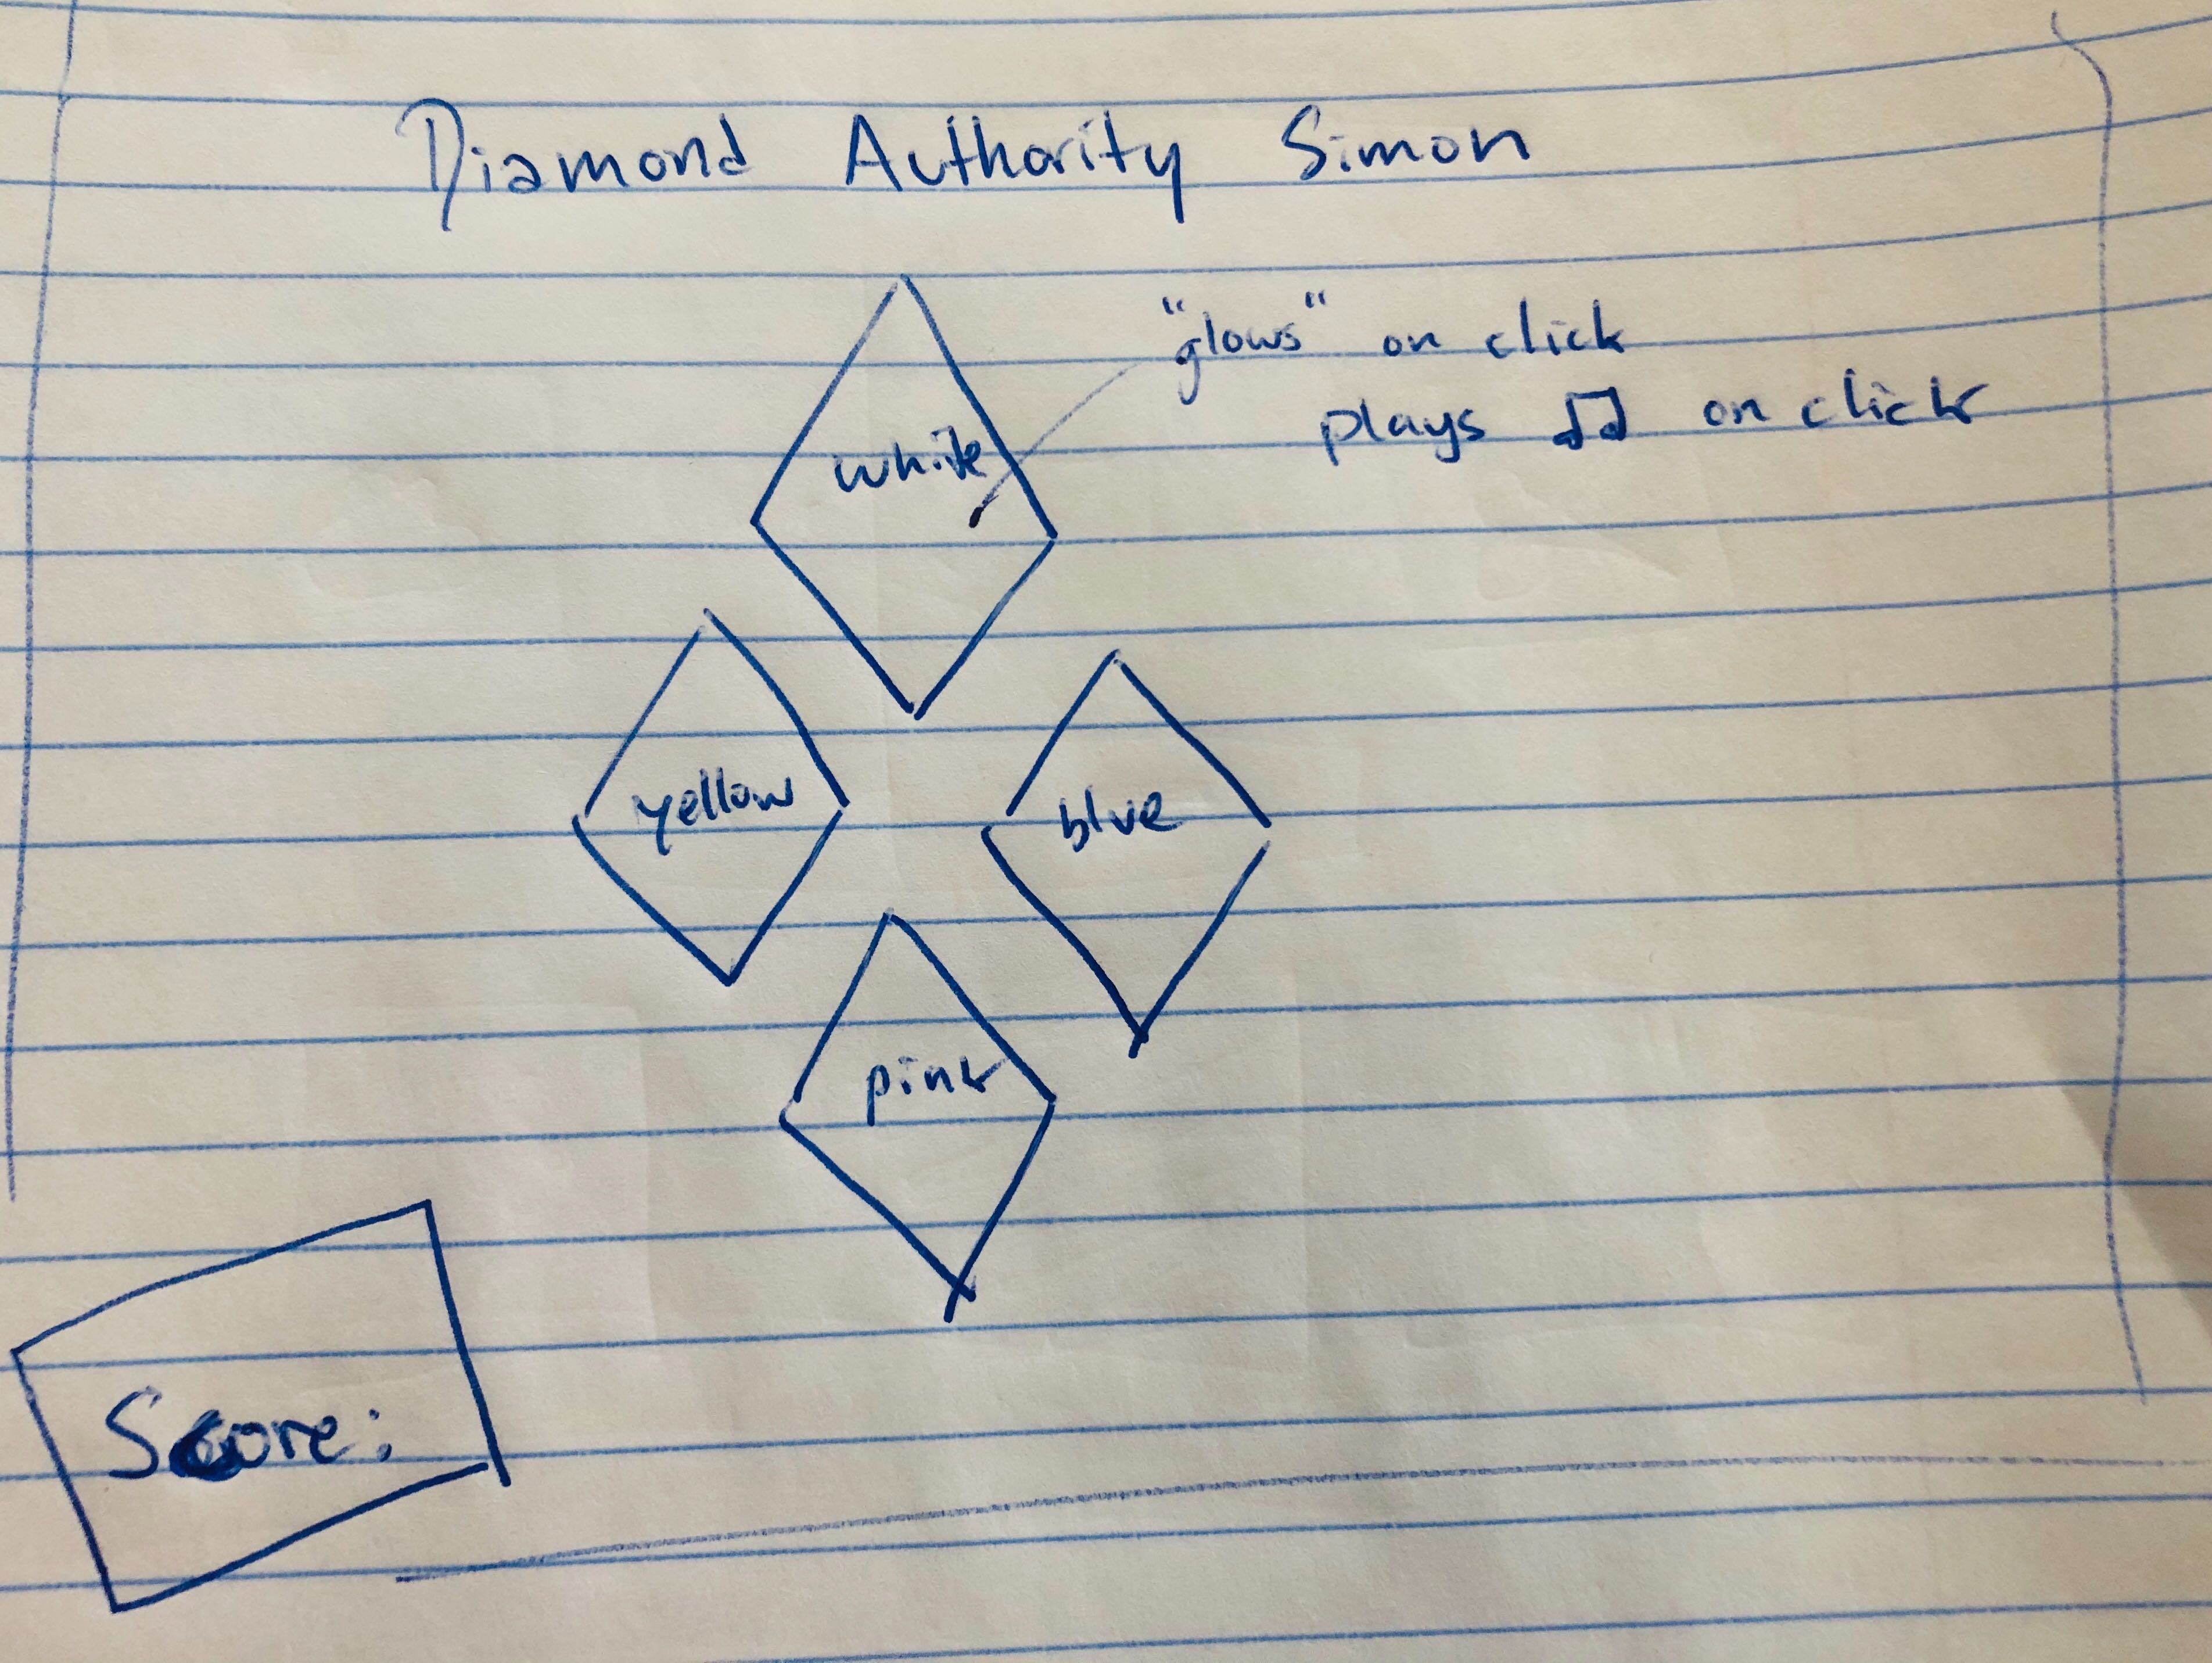 Diamond Authority Simon
"glows" on click
plays ♫ on click
white
yellow
blue
pink
Score: